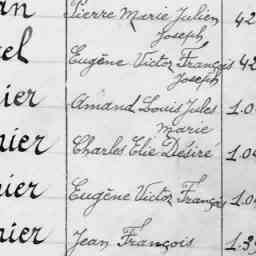 an Pierre Marie Julien 42
Joseph
el Eugène Victor François 42
Joseph
nier Amand Louis Jules 1.0
Marie
nier Charles Elie Désiré 1.04
nier Eugène Victor François 1.04
nier Jean François 1.3